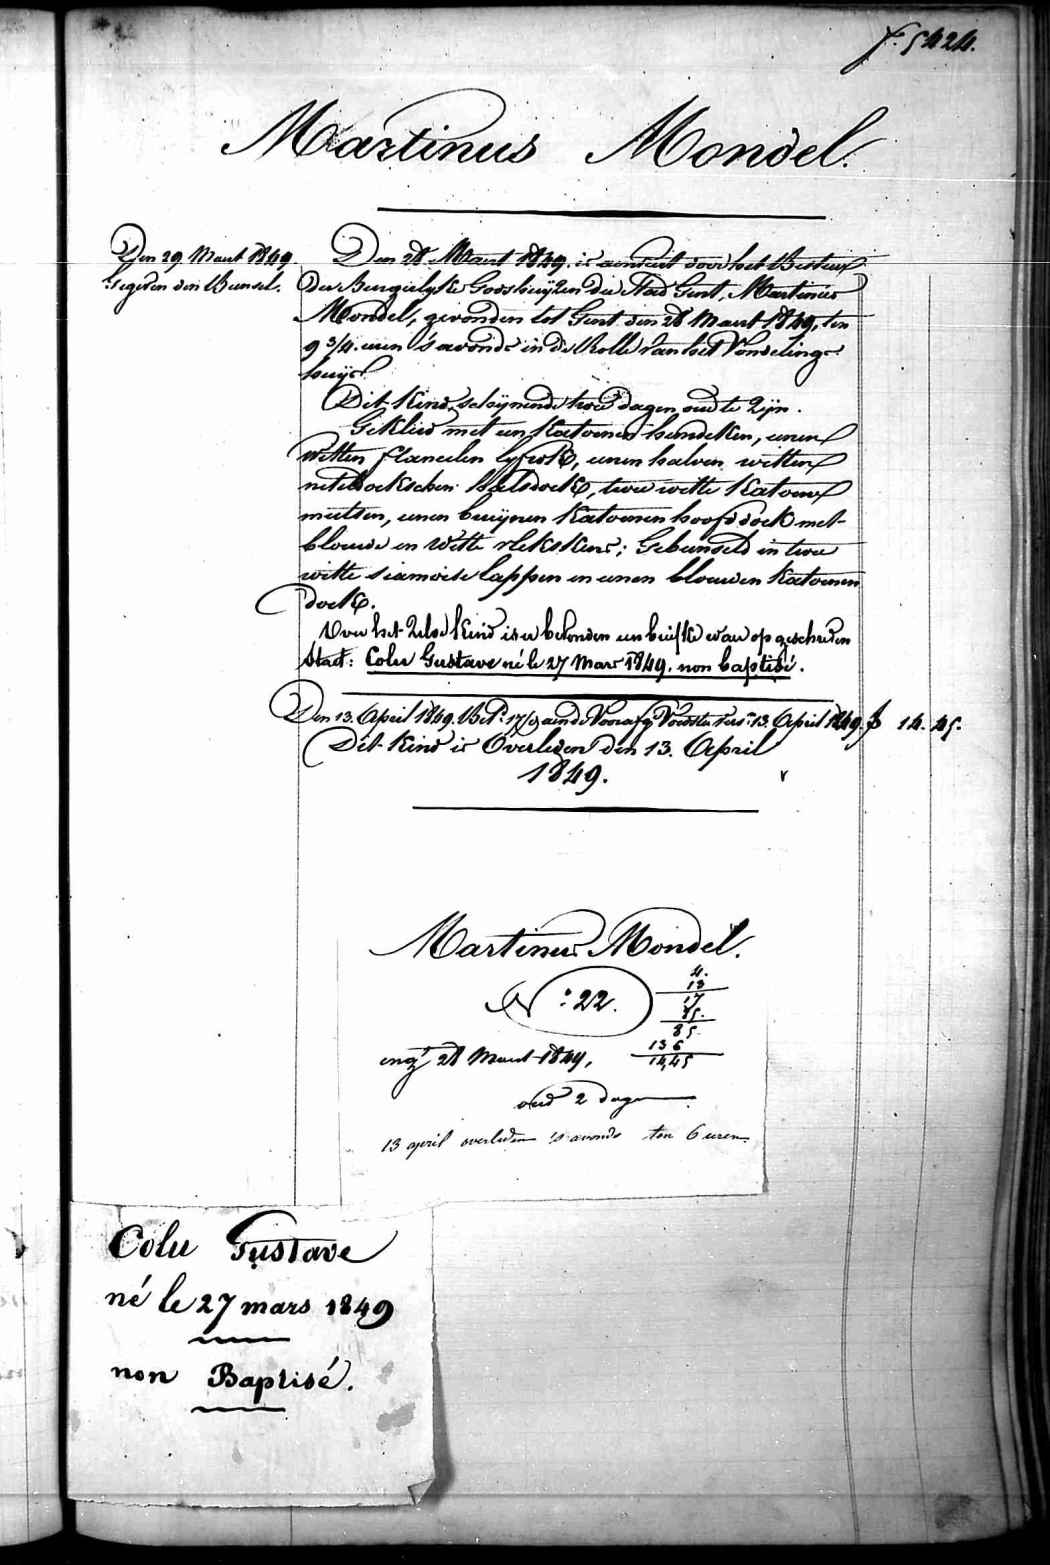 f. 5424.
Martinus Mondel.
Den 29 Maart 1849.
Gegeven den Bunsel.
Den 28 Maart 1849. is aenveirt door het Bestier
der Burgelyke Godshuijzen der Stad Gent, Martinus
Mondel, gevonden tot Gent den 28 Maart 1849, ten
9 3/4. uren 's avonds in de Rolle van het Vondelings-
huijs.
Dit kind, schijnende twee dagen oud te Zijn.
Gekleed met een katoenen hemdeken, eenen
witten flanelen lyfrok, eenen halven witten
neteldoekschen halsdoek, twee witte katoene
mutsen, eenen bruijnen katoenen hoofddoek met
blouwe en witte vlekskens; Gebunseld in twee
witte siamoise lappen en eenen blouwen katoenen
doek.
Over het Zelve kind is er bevonden een briefke waer op geschreven
Staet: Colu Gustave né le 27 Mars 1849. non baptisé.
Den 13. April 1849. Bet. 17/ aen de Voorafg. Voedster 13. April 1849. f 14. 45.
Dit kind is Overleden den 13. April
1849.
Martinus Mondel.
N°: 22.
4.
13
17
85.
85
136
14,45
28 Maart 1849,
oud 2 dagen
13 april overleden 's avonds ten 6 uren
Colu Gustave
né le 27 mars 1849
non Baptisé.